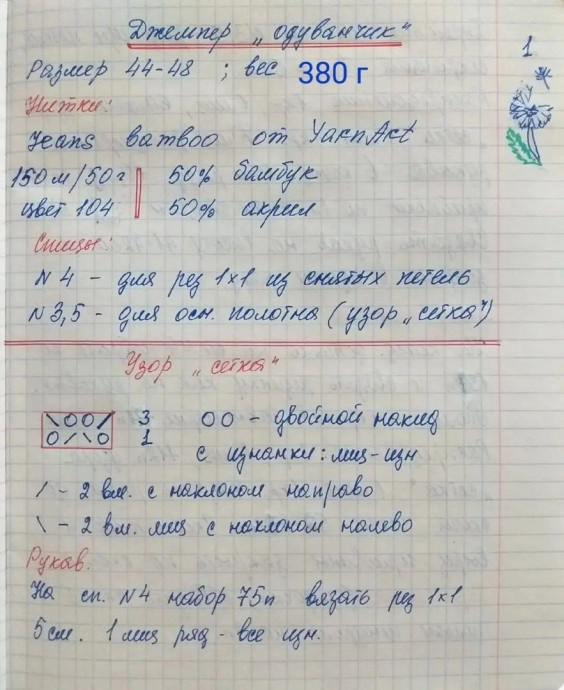 Джемпер „одуванчик"
1
Размер 44-48 ; вес 380 г
Нитки:
Jeans bamboo от YarnArt
150м/50г 50% бамбук
цвет 104 50% акрил
Спицы:
N4 - для рез 1×1 из снятых петель
N3,5 - для осн. полотна (узор „сетка")
Узор „сетка"
\OO/ 3 OO - двойной накид
O/\O 1
с изнанки: лиц-изн
/ - 2 вм. с наклоном направо
\ - 2 вм. лиц с наклоном налево
Рукав.
На сп. N4 набор 75п вязать рез 1×1
5см. 1 лиц ряд - все изн.